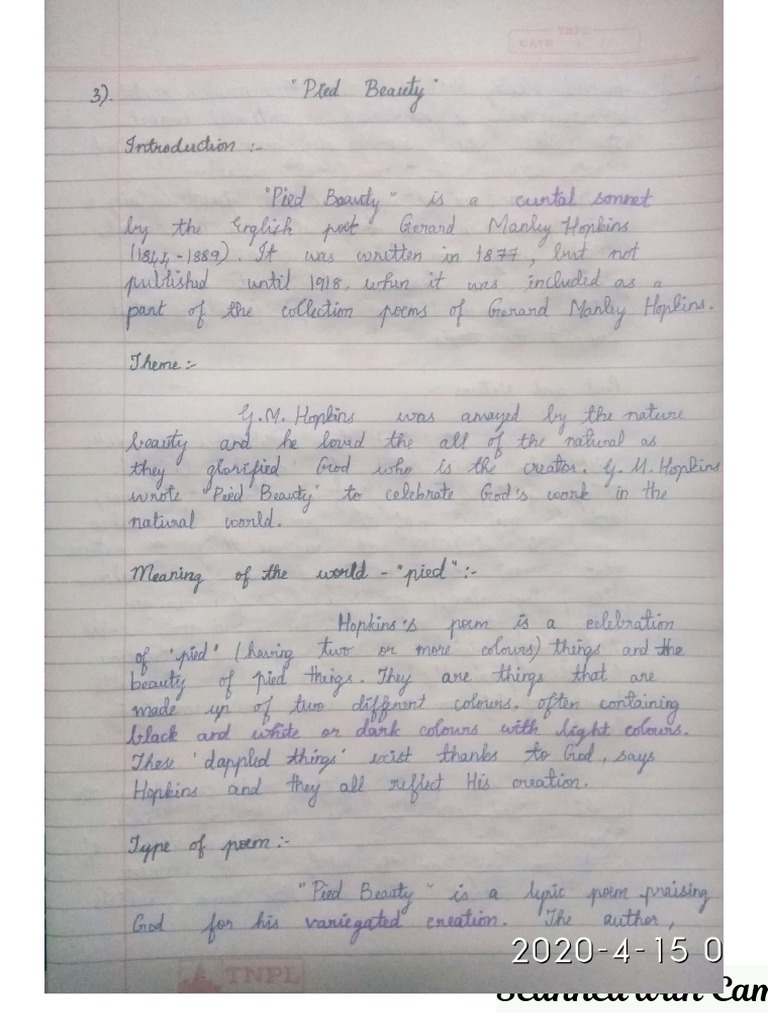 3). "Pied Beauty"
Introduction :-
"Pied Beauty" is a curtal sonnet
by the English poet Gerard Manley Hopkins
(1844-1889). It was written in 1877, but not
published until 1918, when it was included as a
part of the collection poems of Gerard Manley Hopkins.
Theme :-
G.M. Hopkins was amayed by the nature
beauty and he loved the all of the natural as
they glorified God who is the creator. G. M. Hopkins
wrote "Pied Beauty" to celebrate God's work in the
natural world.
Meaning of the world - "pied" :-
Hopkins's poem is a celebration
of 'pied' (having two or more colours) things and the
beauty of pied things. They are things that are
made up of two different colours, often containing
black and white or dark colours with light colours.
These 'dappled things' exist thanks to God, says
Hopkins and they all reflect His creation.
Type of poem :-
"Pied Beauty" is a lyric poem praising
God for his variegated creation. The author,
TNPL
2020-4-15 0
Scanned with Cam